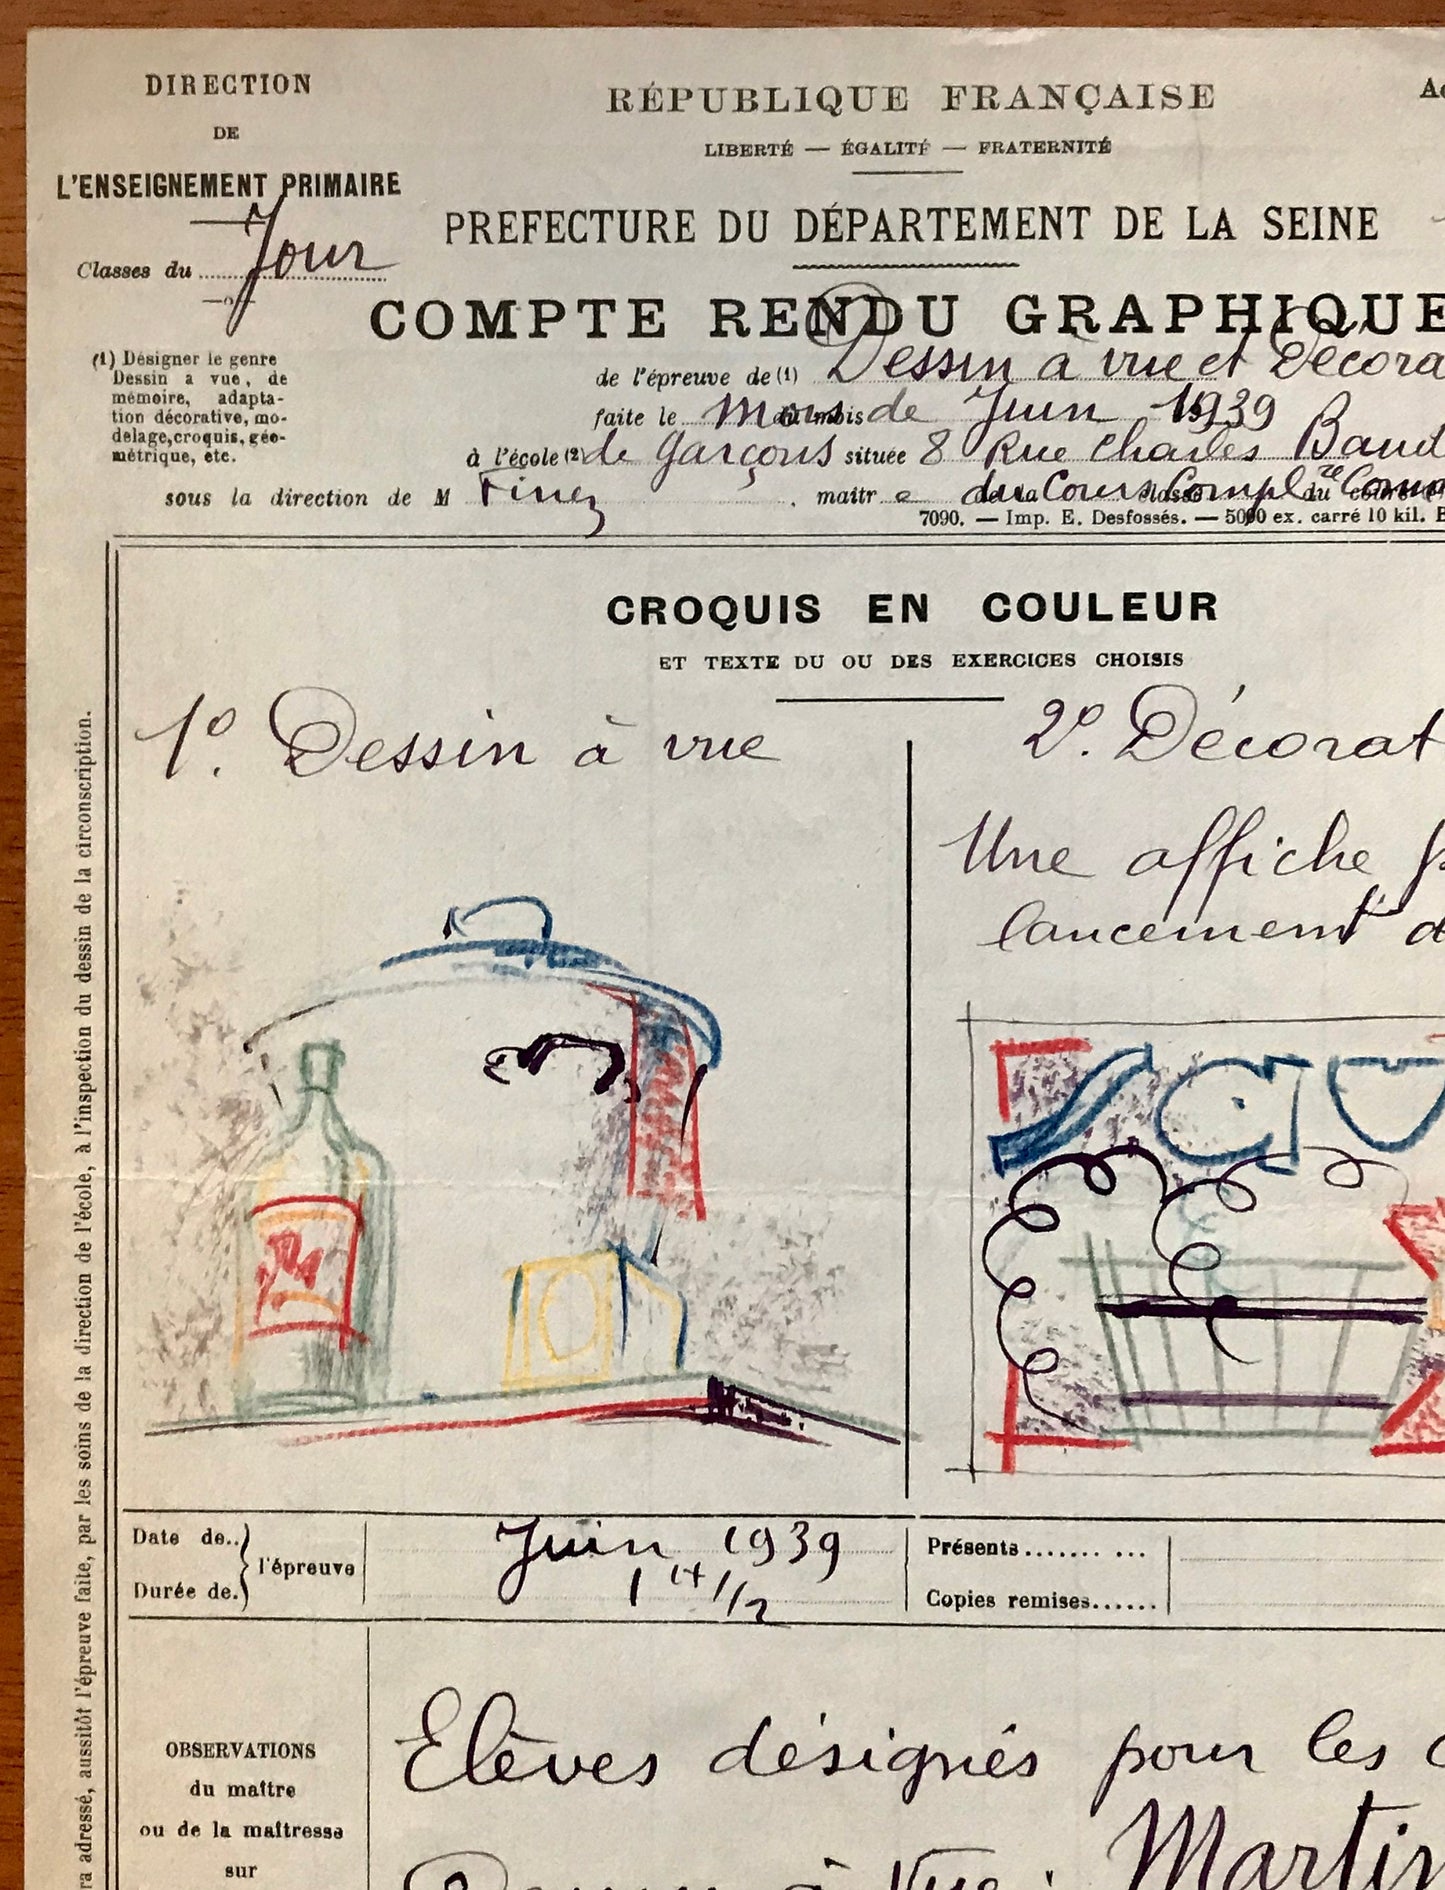 DIRECTION
DE
L'ENSEIGNEMENT PRIMAIRE
Classes du Jour
(1) Désigner le genre
Dessin a vue, de
mémoire, adapta-
tion décorative, mo-
delage, croquis, géo-
métrique, etc.
RÉPUBLIQUE FRANÇAISE
LIBERTÉ — ÉGALITÉ — FRATERNITÉ
PREFECTURE DU DÉPARTEMENT DE LA SEINE
COMPTE RENDU GRAPHIQUE
de l'épreuve de (1) Dessin à vue et Décora
faite le mois de Juin 1939
à l'école (2) de garçons située 8 Rue Charles Baud
sous la direction de M Finez, maître du Cours Compl
7090. — Imp. E. Desfossés. — 5000 ex. carré 10 kil.
CROQUIS EN COULEUR
ET TEXTE DU OU DES EXERCICES CHOISIS
1º. Dessin à vue
2º. Décorat
Une affiche
lancement d
ra adressé, aussitôt l'épreuve faite, par les soins de la direction de l'école, à l'inspection du dessin de la circonscription.
Date de.. } l'épreuve Juin 1939
Durée de. 1 H 1/2
Présents....... ...
Copies remises......
OBSERVATIONS
du maître
ou de la maîtresse
sur
Elèves désignés pour les
Dessin à Vue : Martin